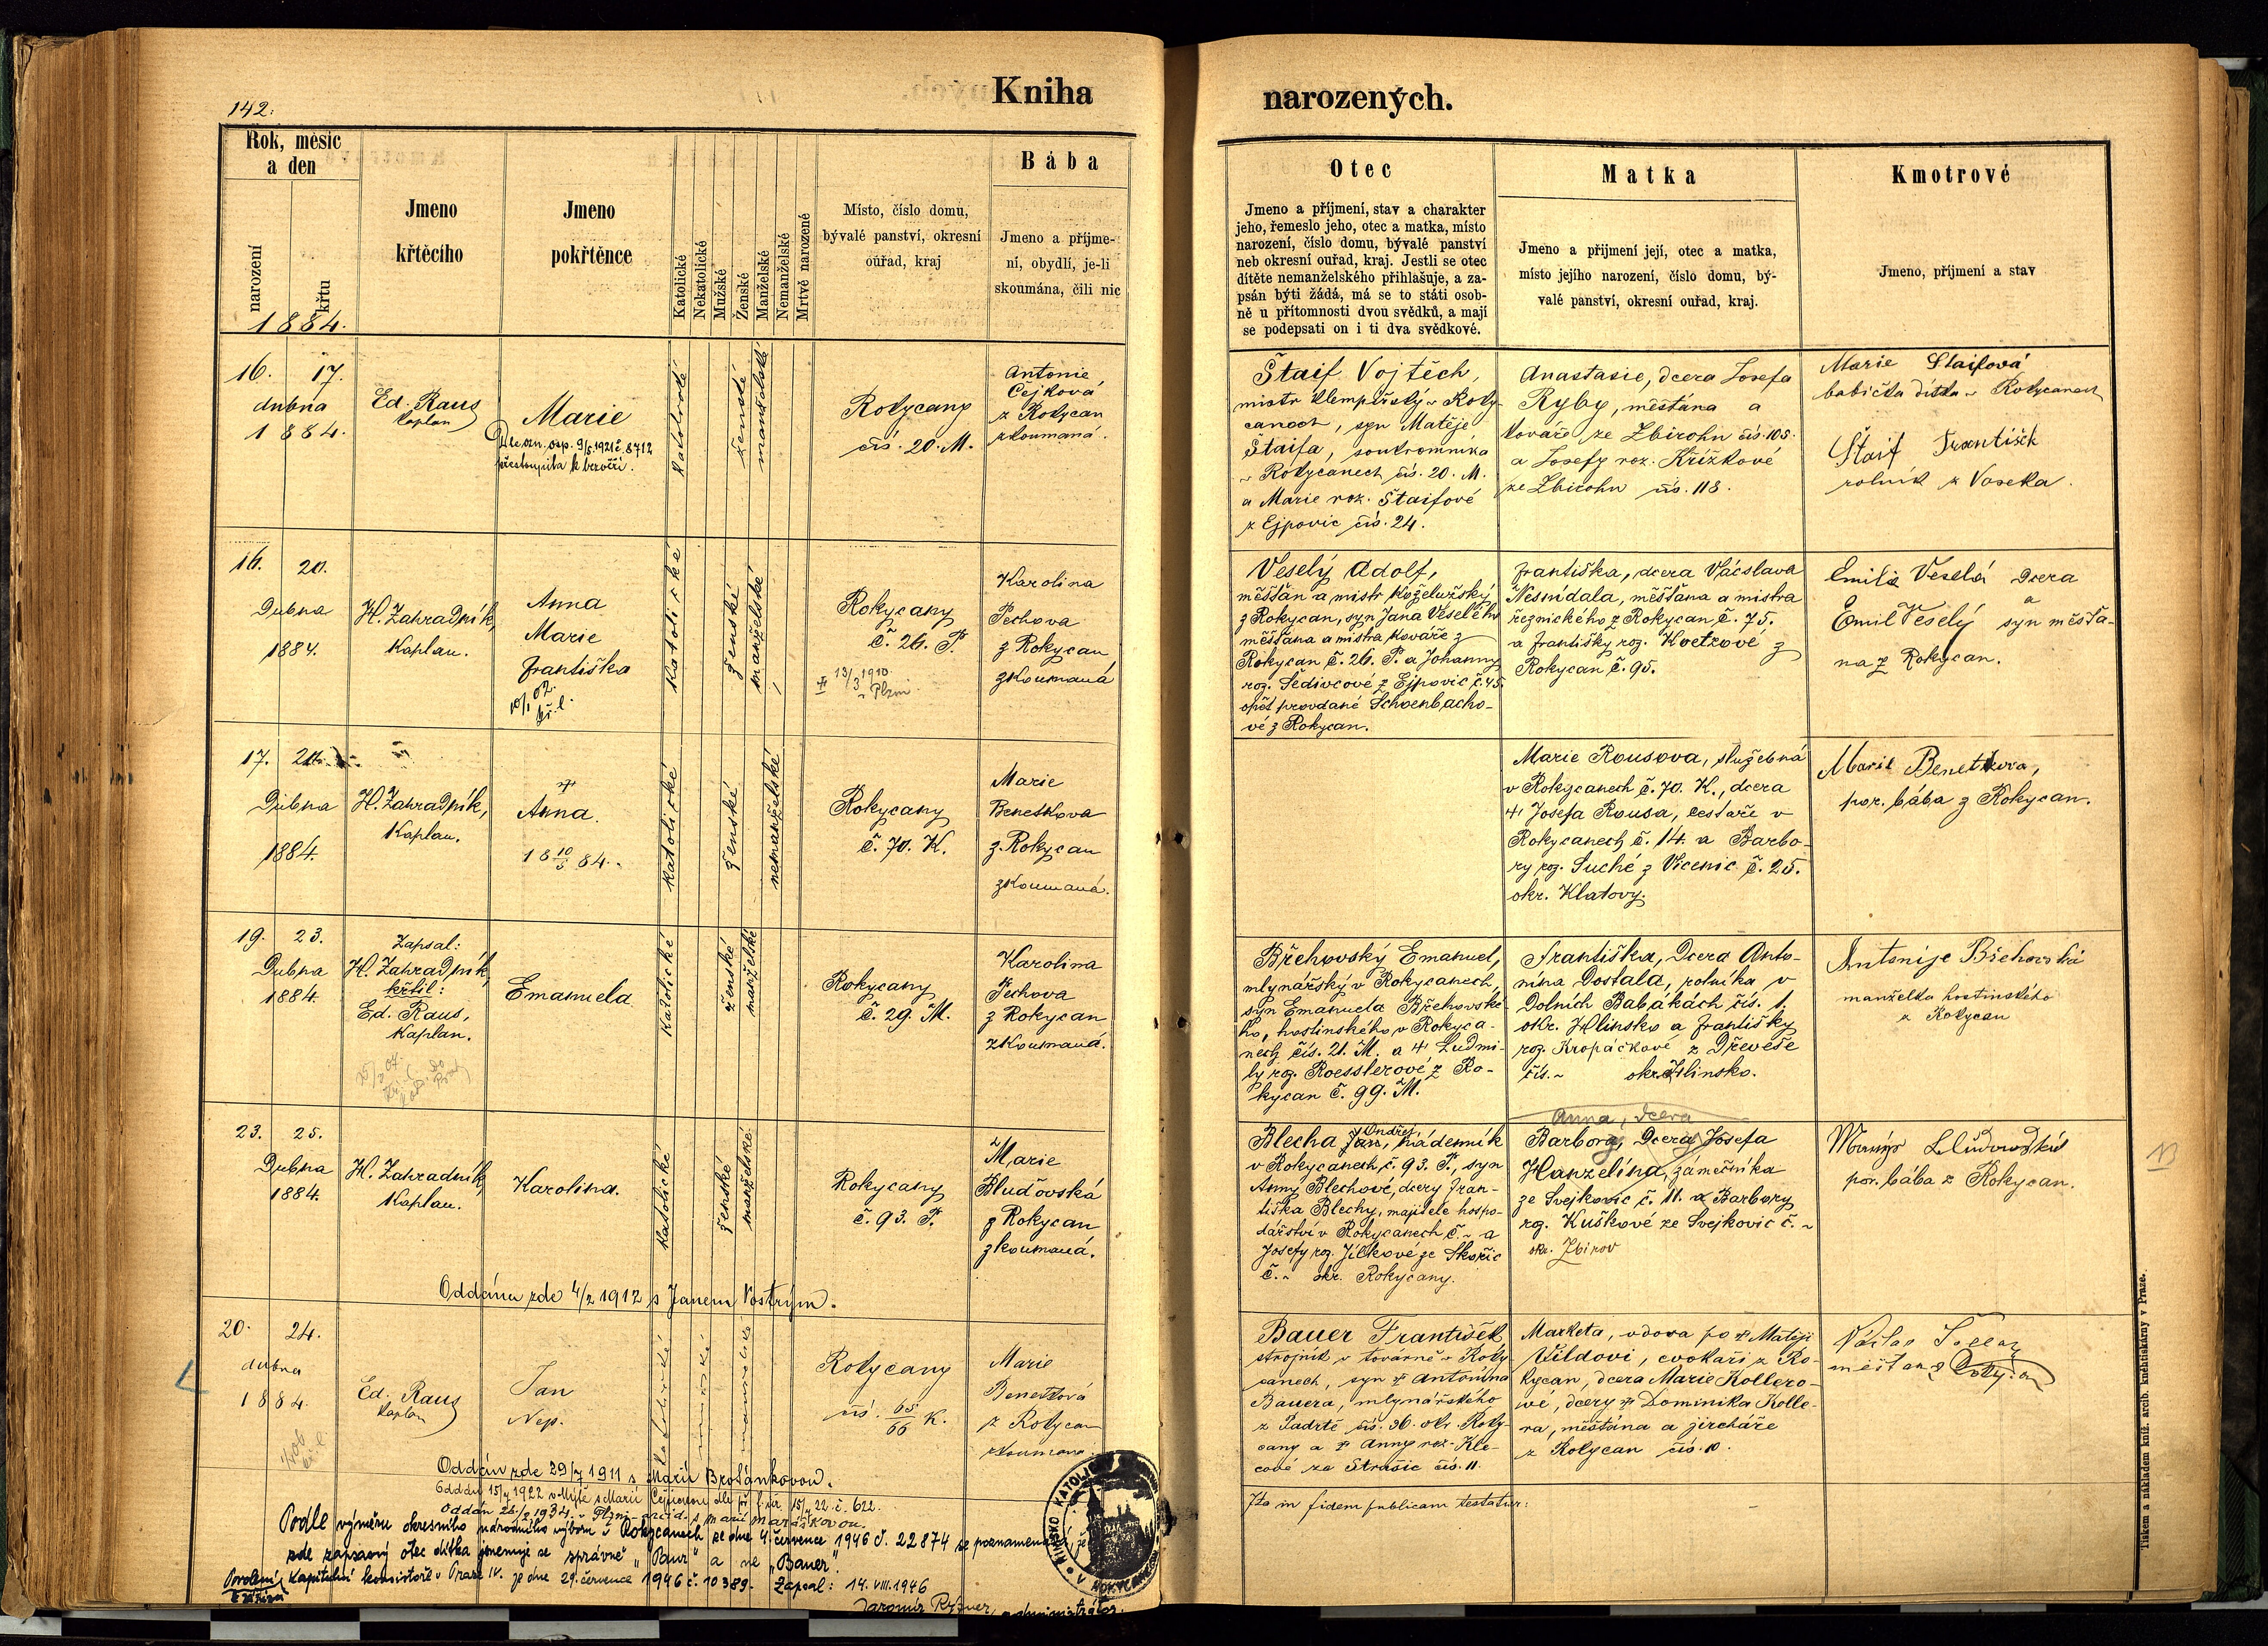 142.
Kniha
narozených.
Rok, měsíc
a den
narození
křtu
1884.
Jmeno
křtěcího
Jmeno
pokřtěnce
Katolické
Nekatolické
Mužské
Ženské
Manželské
Nemanželské
Mrtvě narozené
Místo, číslo domu,
bývalé panství, okresní
ouřad, kraj
Bába
Jmeno a příjme-
ní, obydlí, je-li
skoumána, čili nic
Otec
Jmeno a příjmení, stav a charakter
jeho, řemeslo jeho, otec a matka, místo
narození, číslo domu, bývalé panství
neb okresní ouřad, kraj. Jestli se otec
dítěte nemanželského přihlašuje, a za-
psán býti žádá, má se to státi osob-
ně u přítomnosti dvou svědků, a mají
se podepsati on i ti dva svědkové.
Matka
Jmeno a přijmení její, otec a matka,
místo jejího narození, číslo domu, bý-
valé panství, okresní ouřad, kraj.
Kmotrové
Jmeno, příjmení a stav
16. 17.
dubna
1884.
Ed. Raus
kaplan
Marie
Dle ozn. osp. 9/5 1921 č. 8712
přestoupila k bezvěří.
katolické
ženské
manželské
Rokycany
čís. 20. M.
Antonie
Čejková
z Rokycan
zkoumaná.
Štaif Vojtěch,
mistr klempířský v Roky-
canech, syn Matěje
Štaifa, soukromníka
v Rokycanech čís. 20. M.
a Marie roz. Štaifové
z Ejpovic čís. 24.
Anastasie, dcera Josefa
Ryby, měštána a
kováře ze Zbirohu čís. 105.
a Josefy roz. Křížkové
ze Zbirohu čís. 118.
Marie Staifová
babička dítka v Rokycanech
Štaif František
rolník z Voseka.
16. 20.
Dubna
1884.
H. Zahradník,
Kaplan.
Anna
Marie
Františka
10/1 02.
kř. l.
katolické
ženské
manželské
Rokycany
č. 26. P.
13/3 1910
v Plzni
Karolina
Pechova
z Rokycan
zkoumaná
Veselý Adolf,
měšťan a mistr koželužský
z Rokycan, syn Jana Veselého
měšťana a mistra kováře z
Rokycan č. 26. P. a Johanny
roz. Šedivcové z Ejpovic č. 45.
opět provdané Schoenbacho-
vé z Rokycan.
Františka, dcera Václava
Nesnídala, měšťana a mistra
řeznického z Rokycan č. 75.
a Františky roz. Koetzové z
Rokycan č. 95.
Emilie Veselá dcera
a
Emil Veselý syn měšťa-
na z Rokycan.
17.
Dubna
1884.
H. Zahradník,
Kaplan.
Anna.
18 10/5 84.
katolické
ženské
nemanželské
Rokycany
č. 70. K.
Marie
Benetkova
z Rokycan
zkoumaná.
Marie Rousova, služebná
v Rokycanech č. 70. K., dcera
† Josefa Rousa, cestáře v
Rokycanech č. 14. a Barbo-
ry roz. Suché z Vicenic č. 25.
okr. Klatovy.
Marie Benetkova,
por. bába z Rokycan.
19. 23.
Dubna
1884.
Zapsal:
H. Zahradník,
křtil:
Ed. Raus,
Kaplan.
Emanuela
katolické
ženské
manželské
Rokycany
č. 29. M.
Karolina
Pechova
z Rokycan
zkoumaná.
Břehovský Emanuel,
mlynářský v Rokycanech,
syn Emanuela Břehovské-
ho, hostinského v Rokyca-
nech čís. 21. M. a † Ludmi-
ly roz. Roesslerové z Ro-
kycan č. 99. M.
Františka, dcera Anto-
nína Dostala, rolníka v
Dolních Babákách čís. 1.
okr. Hlinsko a Františky
roz. Kropáčkové z Dřeveše
čís. ~ okr. Hlinsko.
Antonije Břehovská
manželka hostinského
z Rokycan
23. 25.
Dubna
1884.
H. Zahradník,
Kaplan.
Karolina.
katolické
ženské
manželské
Rokycany
č. 93. P.
Marie
Bluďovská
z Rokycan
zkoumaná.
Oddána zde 4/2 1912 s Janem Vostrým.
Ondřej,
Blecha Jan, nádenník
v Rokycanech č. 93. P., syn
Anny Blechové, dcery Fran-
tiška Blechy, majitele hospo-
dářství v Rokycanech č. ~ a
Josefy roz. Jílkové ze Skořic
č. ~ okr. Rokycany.
Anna, dcera
Barbora, Dcera Josefa
Hanzelína, zámečníka
ze Svejkovic č. 11. a Barbory
roz. Kuškové ze Svejkovic č. ~
okr. Zbirov
por. bába z Rokycan.
20. 24.
dubna
1884.
Ed. Raus
Kaplan
Jan
Nep.
Rokycany
čís. 65/66 K.
Marie
Benetková
z Rokycan
zkoumana.
Bauer František
strojník v továrně v Roky-
canech, syn † Antonína
Bauera, mlynářského
z Padrtě čís. 36. okr. Roky-
cany a † Anny roz. Kle-
cové ze Strašic čís. 11.
Marketa, vdova po † Matěji
Vildovi, cvokaři z Ro-
kycan, dcera Marie Kollero-
vé, dcery † Dominika Kolle-
ra, měštána a jircháře
z Rokycan čís. 10.
měštan z Rokycan
Oddán zde 29/7 1911 s Marií Brotánkovou.
Podle výměru okresního národního výboru v Rokycanech ze dne 4. července 1946 č. 22874 se poznamenává, že
zde zapsaný otec dítka jmenuje se správně "Baur" a ne "Bauer".
Povolení kapitulní konsistoře v Praze IV. ze dne 29. července 1946 č. 10389. Zapsal: 14. VIII. 1946
Jaromír Rýzner, administrátor.
Ita in fidem publicam testatur:
Tiskem a nákladem kníž. arcib. knihtiskárny v Praze.